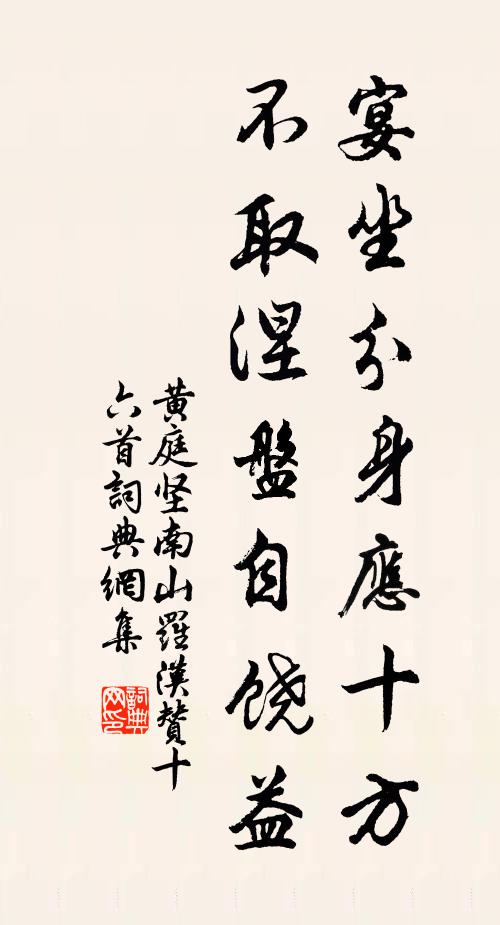 宴坐分身應十方
不取涅盤自饒益
黄庭坚南山羅漢贊十
六首詞典網集
詞典
网印